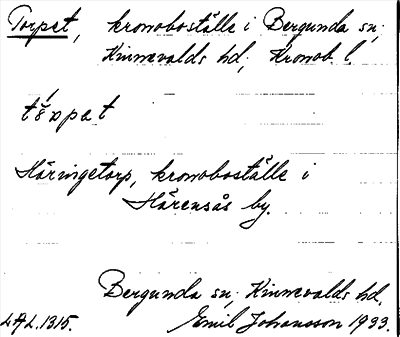 Torpet, kronoboställe i Bergunda sn;
Kinnevalds hd, Kronob. l.
Häringetorp, kronoboställe i
Härensås by.
Bergunda sn; Kinnevalds hd.
LAL.1315. Emil Johansson 1933.